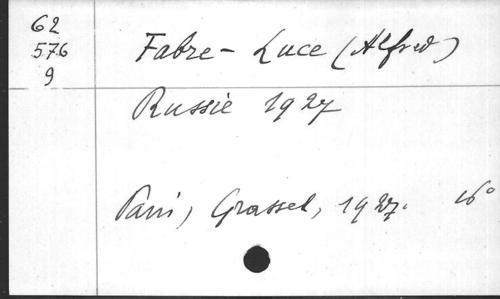 62
576
9
Fabre-Luce (Alfred)
Russie 1927
Paris, Grasset, 1927. 16°